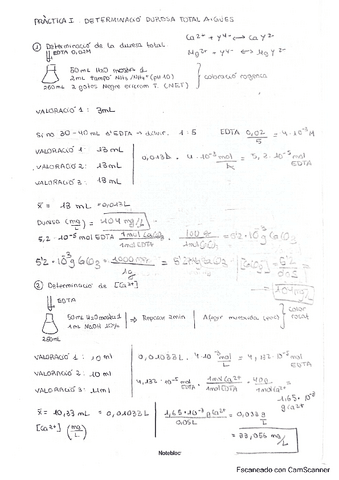 PRÀCTICA I. DETERMINACIÓ DURESA TOTAL AIGÜES
Ca2+ + Y4- ⇔ CaY2-
① Determinació de la duresa total
Mg2+ + Y4- ⇔ MgY2-
EDTA 0,02M
50mL H2O mostra 1
2mL tampó NH3/NH4+ (pH10)
2 gotes Negre ericrom T (NET)
250mL
coloració rogenca
VALORACIÓ 1: 3mL
Si no 30-40mL d'EDTA 1:5
EDTA 0,02/5 = 4·10-3 M
VALORACIÓ 1: 13mL
VALORACIÓ 2: 13mL
VALORACIÓ 3: 13mL
0,013L · 4·10-3 mol/L = 5,2·10-5 mol EDTA
x̄ = 13mL = 0,013L
Duresa (mg/L) = 104 mg/L
5,2·10-5 mol EDTA · 1mol CaCO3/1mol EDTA · 100g/1mol CaCO3 = 5'2·10-3 g CaCO3
5'2·10-3 g CaCO3 · 1000mg/1g = 5'2mg CaCO3
[CaCO3] = 5'2/0.05 = 104mg/L
② Determinació de [Ca2+]
EDTA
50mL H2O mostra 1
1mL NaOH 10%
250mL
→ Reposar 2min
Afegir murexida
color rosat
VALORACIÓ 1: 10ml
VALORACIÓ 2: 10ml
VALORACIÓ 3: 11ml
0,01033L · 4·10-3 mol/L = 4,132·10-5 mol EDTA
4,132·10-5 mol EDTA · 1mol Ca2+/1mol EDTA
1.65·10-3 g Ca2+
x̄ = 10,33mL = 0,01033L
1,65·10-3 g Ca2+/0,05L = 0,033g/L
[Ca2+] (mg/L)
= 33,056 mg/L
Notebloc
Escaneado con CamScanner